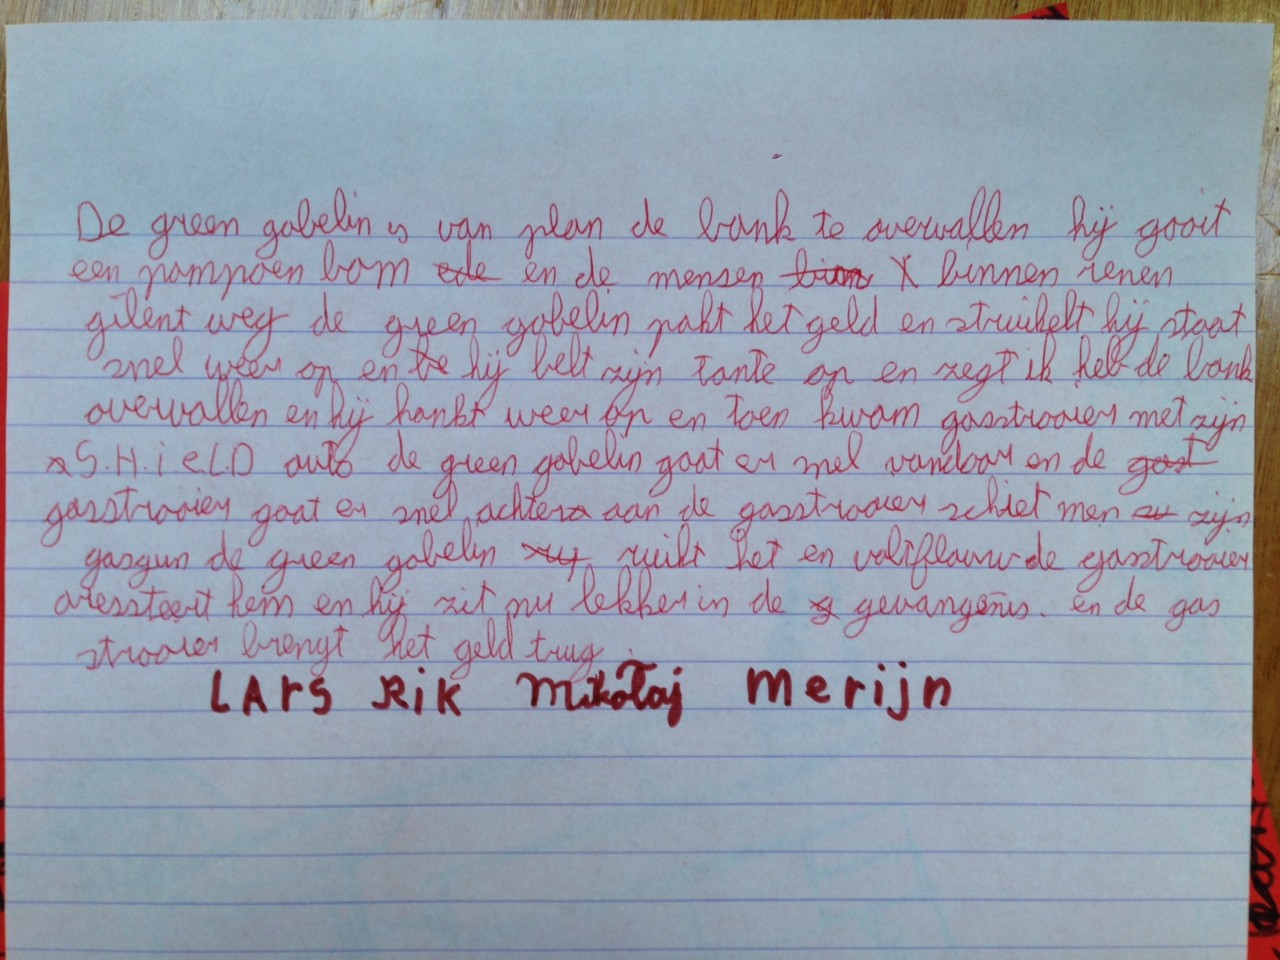 De green gobelin is van plan de bank te overvallen hij gooit
een pompoen bom ede en de mensen binn X binnen renen
gilent weg de green gobelin pakt het geld en struikelt hij staat
snel weer op en te hij belt zijn tante op en zegt ik heb de bank
overvallen en hij hankt weer op en toen kwam gasstrooier met zijn
S.H.i e.L.D auto de green gobelin gaat er snel vandoor en de gast
gasstrooier gaat er snel achter aan de gasstrooier schiet men zijn
gasgun de green gobelin ruikt het en valtflauw de gasstrooier
aressteert hem en hij zit nu lekker in de g gevangenis. en de gas
strooier brengt het geld trug.
LArS RiK Mikołaj Merijn